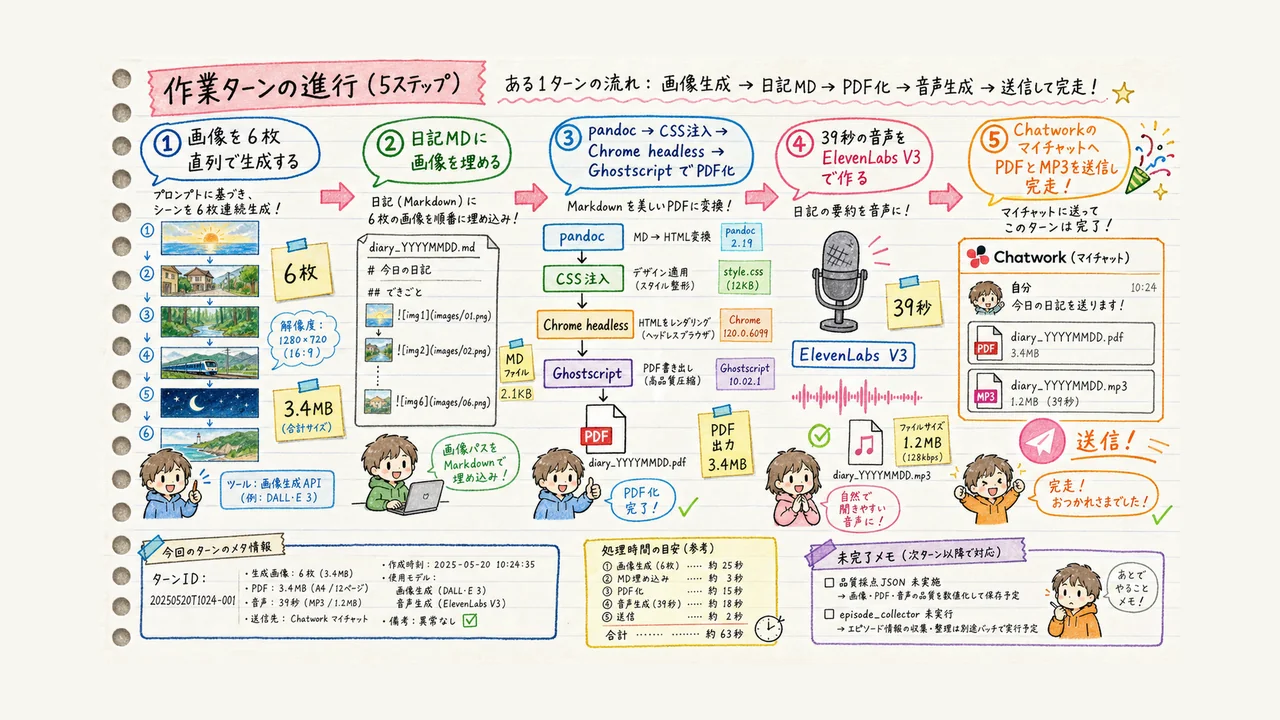 作業ターンの進行（5ステップ）
ある1ターンの流れ： 画像生成 → 日記MD → PDF化 → 音声生成 → 送信して完走！
① 画像を6枚
直列で生成する
プロンプトに基づき、
シーンを6枚連続生成！
①
②
③
④
⑤
⑥
6枚
解像度：
1280×720
（16：9）
3.4MB
（合計サイズ）
ツール：画像生成API
（例：DALL·E 3）
② 日記MDに
画像を埋める
日記（Markdown）に
6枚の画像を順番に埋め込み！
diary_YYYYMMDD.md
# 今日の日記
## できごと
![img1](images/01.png)
![img2](images/02.png)
![img6](images/06.png)
MD
ファイル
2.1KB
画像パスを
Markdownで
埋め込み！
③ pandoc → CSS注入 →
Chrome headless →
Ghostscript でPDF化
Markdownを美しいPDFに変換！
pandoc
MD → HTML変換
pandoc
2.19
CSS注入
デザイン適用
（スタイル整形）
style.css
(12KB)
Chrome headless
HTMLをレンダリング
（ヘッドレスブラウザ）
Chrome
120.0.6099
Ghostscript
PDF書き出し
（高品質圧縮）
Ghostscript
10.02.1
PDF
diary_YYYYMMDD.pdf
PDF
出力
3.4MB
PDF化
完了！
④ 39秒の音声を
ElevenLabs V3
で作る
日記の要約を音声に！
39秒
ElevenLabs V3
diary_YYYYMMDD.mp3
ファイルサイズ
1.2MB
(128kbps)
自然で
聞きやすい
音声に！
⑤ Chatworkの
マイチャットへ
PDFとMP3を送信し
完走！
マイチャットに送って
このターンは完了！
Chatwork（マイチャット）
自分 10:24
今日の日記を送ります！
PDF
diary_YYYYMMDD.pdf
3.4MB
MP3
diary_YYYYMMDD.mp3
1.2MB（39秒）
送信！
完走！
おつかれさまでした！
今回のターンのメタ情報
ターンID：
20250520T1024-001
・生成画像：6枚（3.4MB）
・PDF：3.4MB（A4/12ページ）
・音声：39秒（MP3/1.2MB）
・送信先：Chatwork マイチャット
・作成時刻：2025-05-20 10:24:35
・使用モデル：
画像生成（DALL·E 3）
音声生成（ElevenLabs V3）
・備考：異常なし
処理時間の目安（参考）
① 画像生成（6枚） ····· 約 25秒
② MD埋め込み ····· 約 3秒
③ PDF化 ····· 約 15秒
④ 音声生成（39秒） ····· 約 18秒
⑤ 送信 ····· 約 2秒
合計 ······· ········ 約 63秒
未完了メモ（次ターン以降で対応）
□ 品質採点JSON 未実施
→ 画像・PDF・音声の品質を数値化して保存予定
□ episode_collector 未実行
→ エピソード情報の収集・整理は別途バッチで実行予定
あとで
やること
メモ！